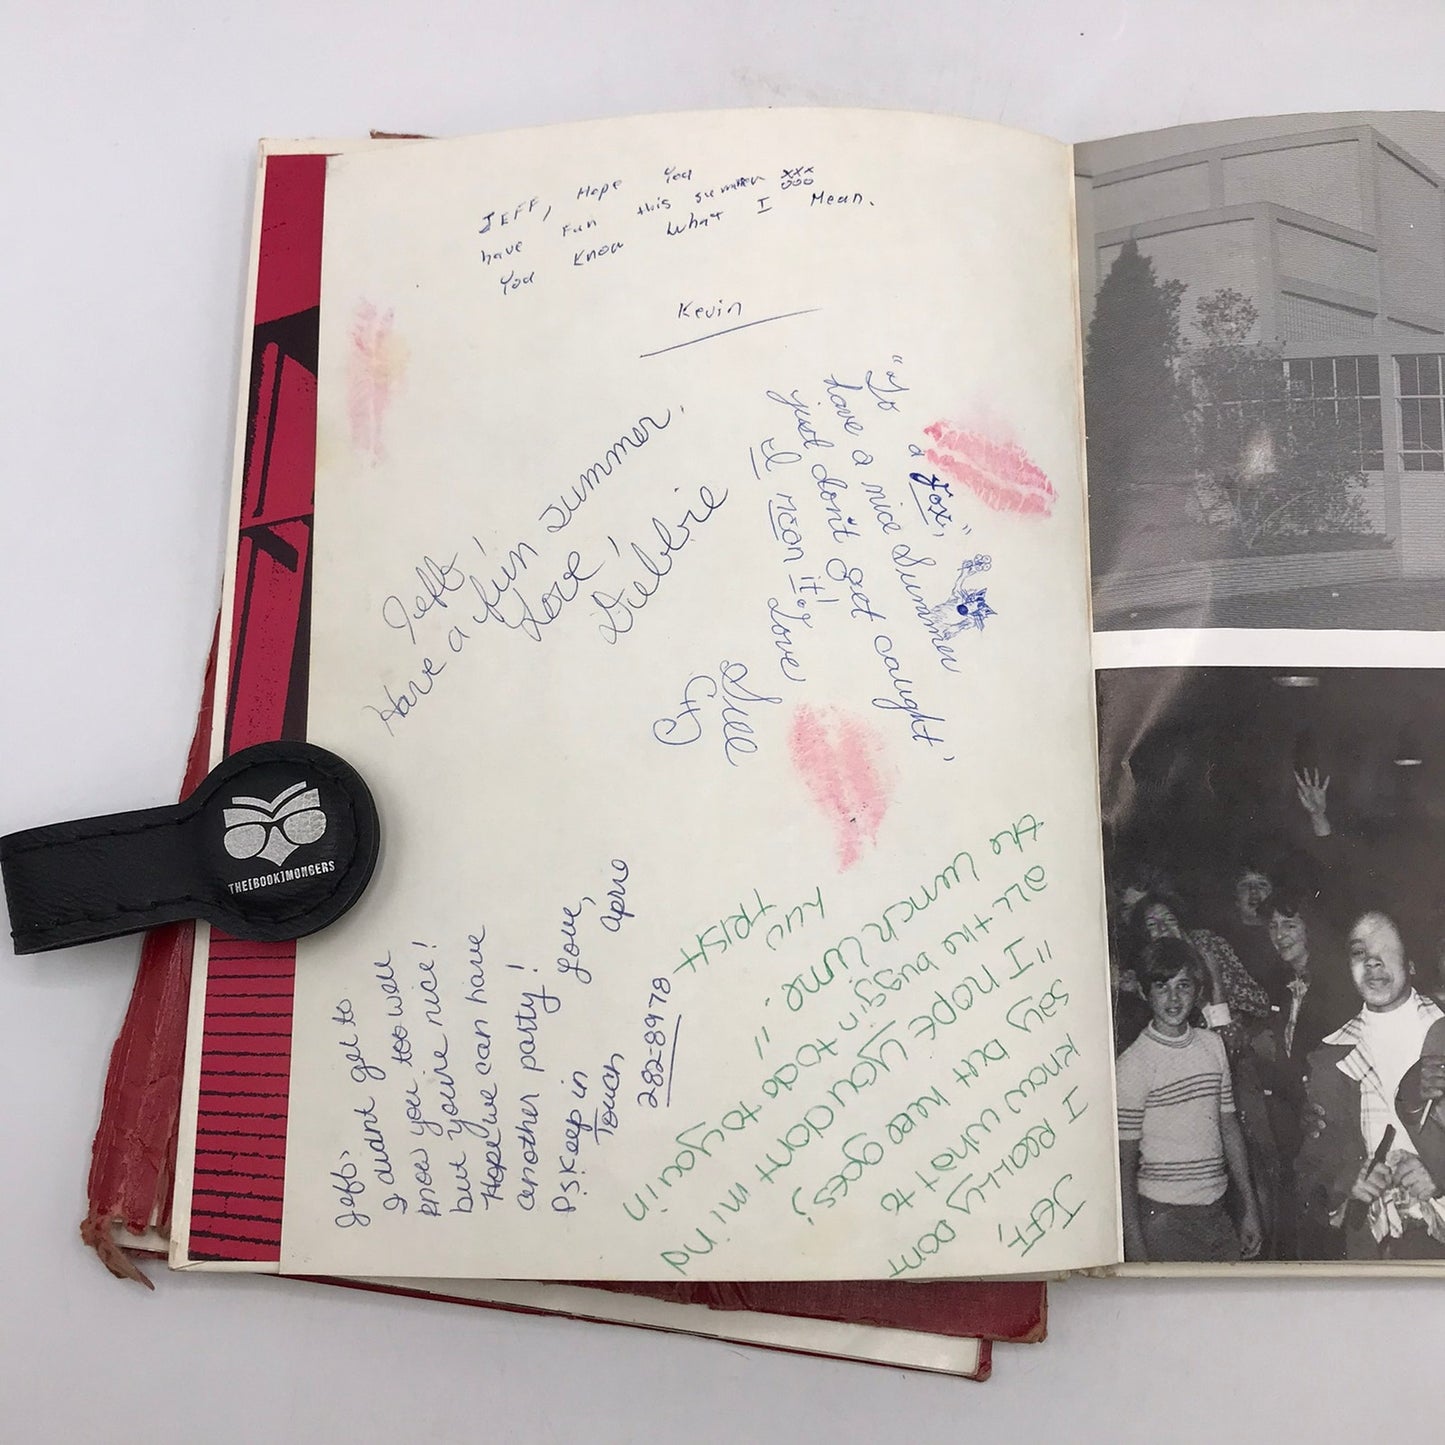 JEFF, Hope You
have Fun this summer xxx ooo
You know what I Mean.
Kevin
Jeff,
Have a fun summer.
Love,
Debbie
"To a Fox,"
have a nice Summer
just don't get caught,
I mean it! Love
Jeff,
I didn't get to
know you too well
but you're nice!
Hope we can have
another party!
P.S. Keep in Love,
Touch
282-8978
JEFF,
I REALLY DONT
KNOW WHAT TO
SAY BUT HERE GOES;
"I HOPE YOU DONT MIND
ALL THE BUGGIN I DO TO YOU IN
THE LUNCH LINE."
LUV
TRISH
THE[BOOK]MONGERS